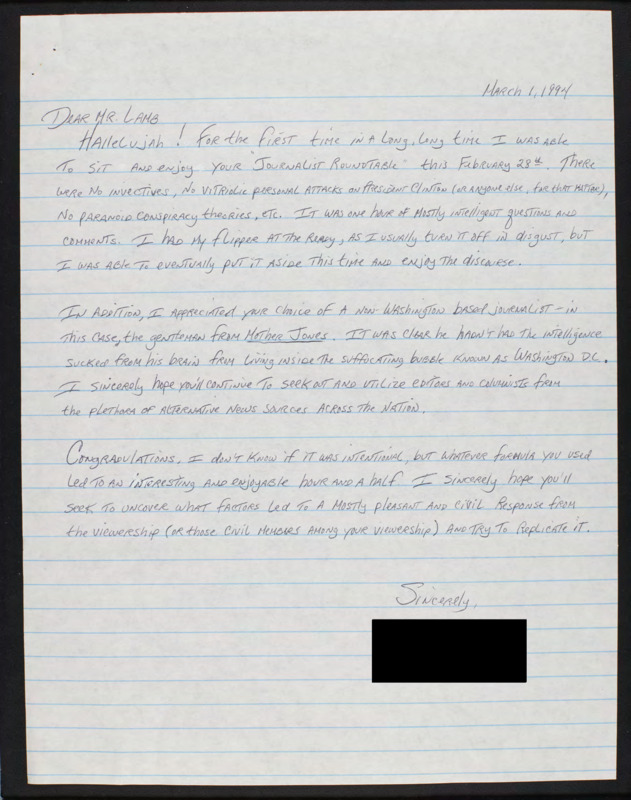 March 1, 1994
Dear Mr. Lamb
Hallelujah! For the first time in a long, long time I was able
to sit and enjoy your Journalist Roundtable this February 28th. There
were no invectives, no vitriolic personal attacks on President Clinton (or anyone else, for that matter),
no paranoid conspiracy theories, etc. It was one hour of mostly intelligent questions and
comments. I had my flipper at the ready, as I usually turn it off in disgust, but
I was able to eventually put it aside this time and enjoy the discourse.
In addition, I appreciated your choice of a non-Washington based journalist – in
this case, the gentleman from Mother Jones. It was clear he hadn't had the intelligence
sucked from his brain from living inside the suffocating bubble known as Washington DC.
I sincerely hope you'll continue to seek out and utilize editors and columnists from
the plethora of alternative news sources across the nation.
Congradulations. I don't know if it was intentional, but whatever formula you used
led to an interesting and enjoyable hour and a half. I sincerely hope you'll
seek to uncover what factors led to a mostly pleasant and civil response from
the viewership (or those civil members among your viewership) and try to replicate it.
Sincerely,